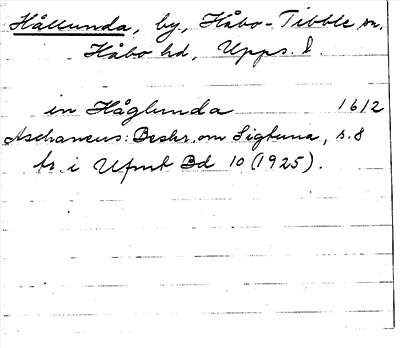 Hållunda, by, Håbo-Tibble sn.
Håbo hd, Upps. l.
in Håglunda 1612
Aschaneus: Beskr. om Sigtuna, s. 8
tr. i Ufmt Bd 10 (1925).